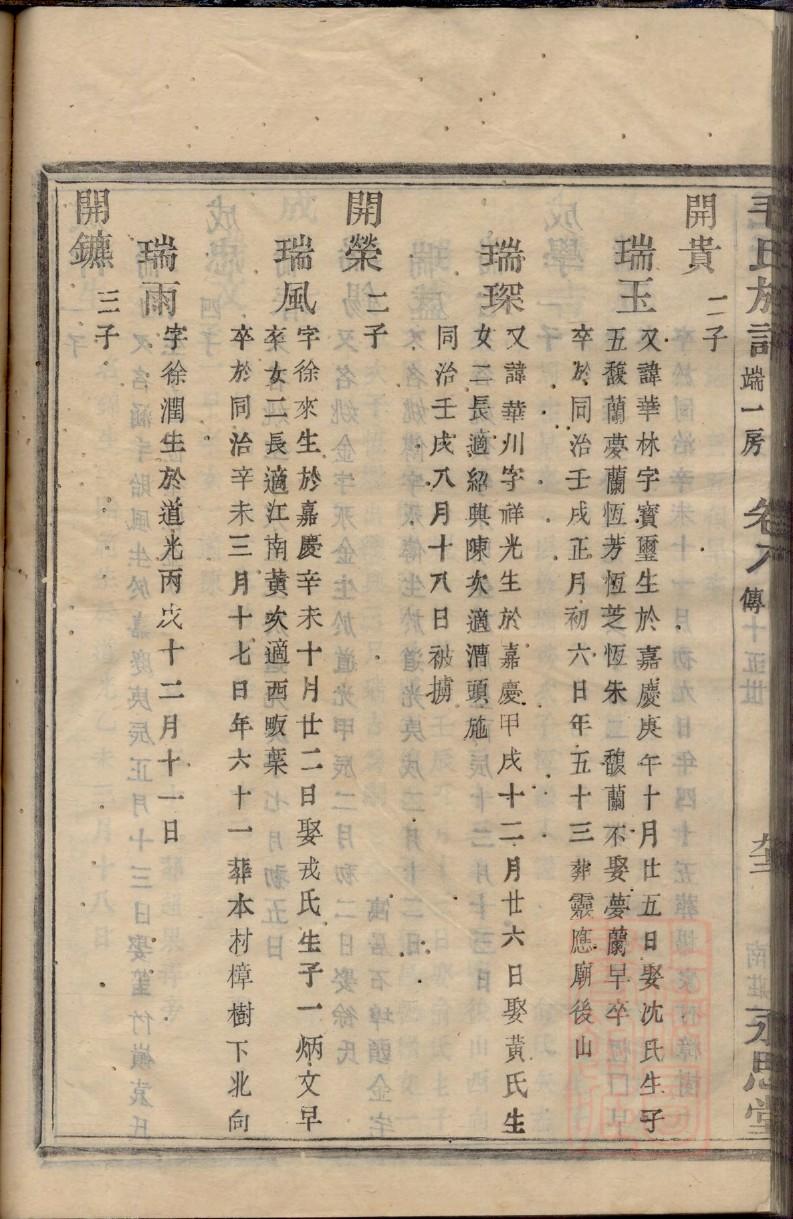 毛氏族譜 端一房 卷八 傳 十五世 南莊 永思堂
開貴 二子
瑞玉 又諱華林字寶璽生於嘉慶庚午十月廿五日娶沈氏生子
五馥蘭夢蘭恆芳恆芝恆朱二馥蘭不娶夢蘭早卒恆口早
卒於同治壬戌正月初六日年五十三葬靈應廟後山
瑞琛 又諱華川字祥光生於嘉慶甲戌十二月廿六日娶黃氏生
女二長適紹興陳次適漕頭施
同治壬戌八月十八日被擄
開榮 二子
瑞風 字徐來生於嘉慶辛未十月廿二日娶戎氏生子一炳文早
卒女二長適江南黃次適西畈葉
卒於同治辛未三月十七日年六十一葬本村樟樹下北向
瑞雨 字徐潤生於道光丙戌十二月十一日
開鑣 三子